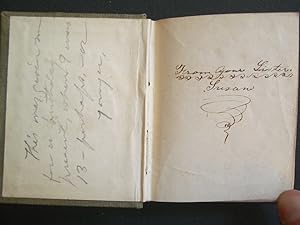 This was given me
for a birthday
present, when I was
13 - perhaps - or
younger,
From your Sister,
Susan